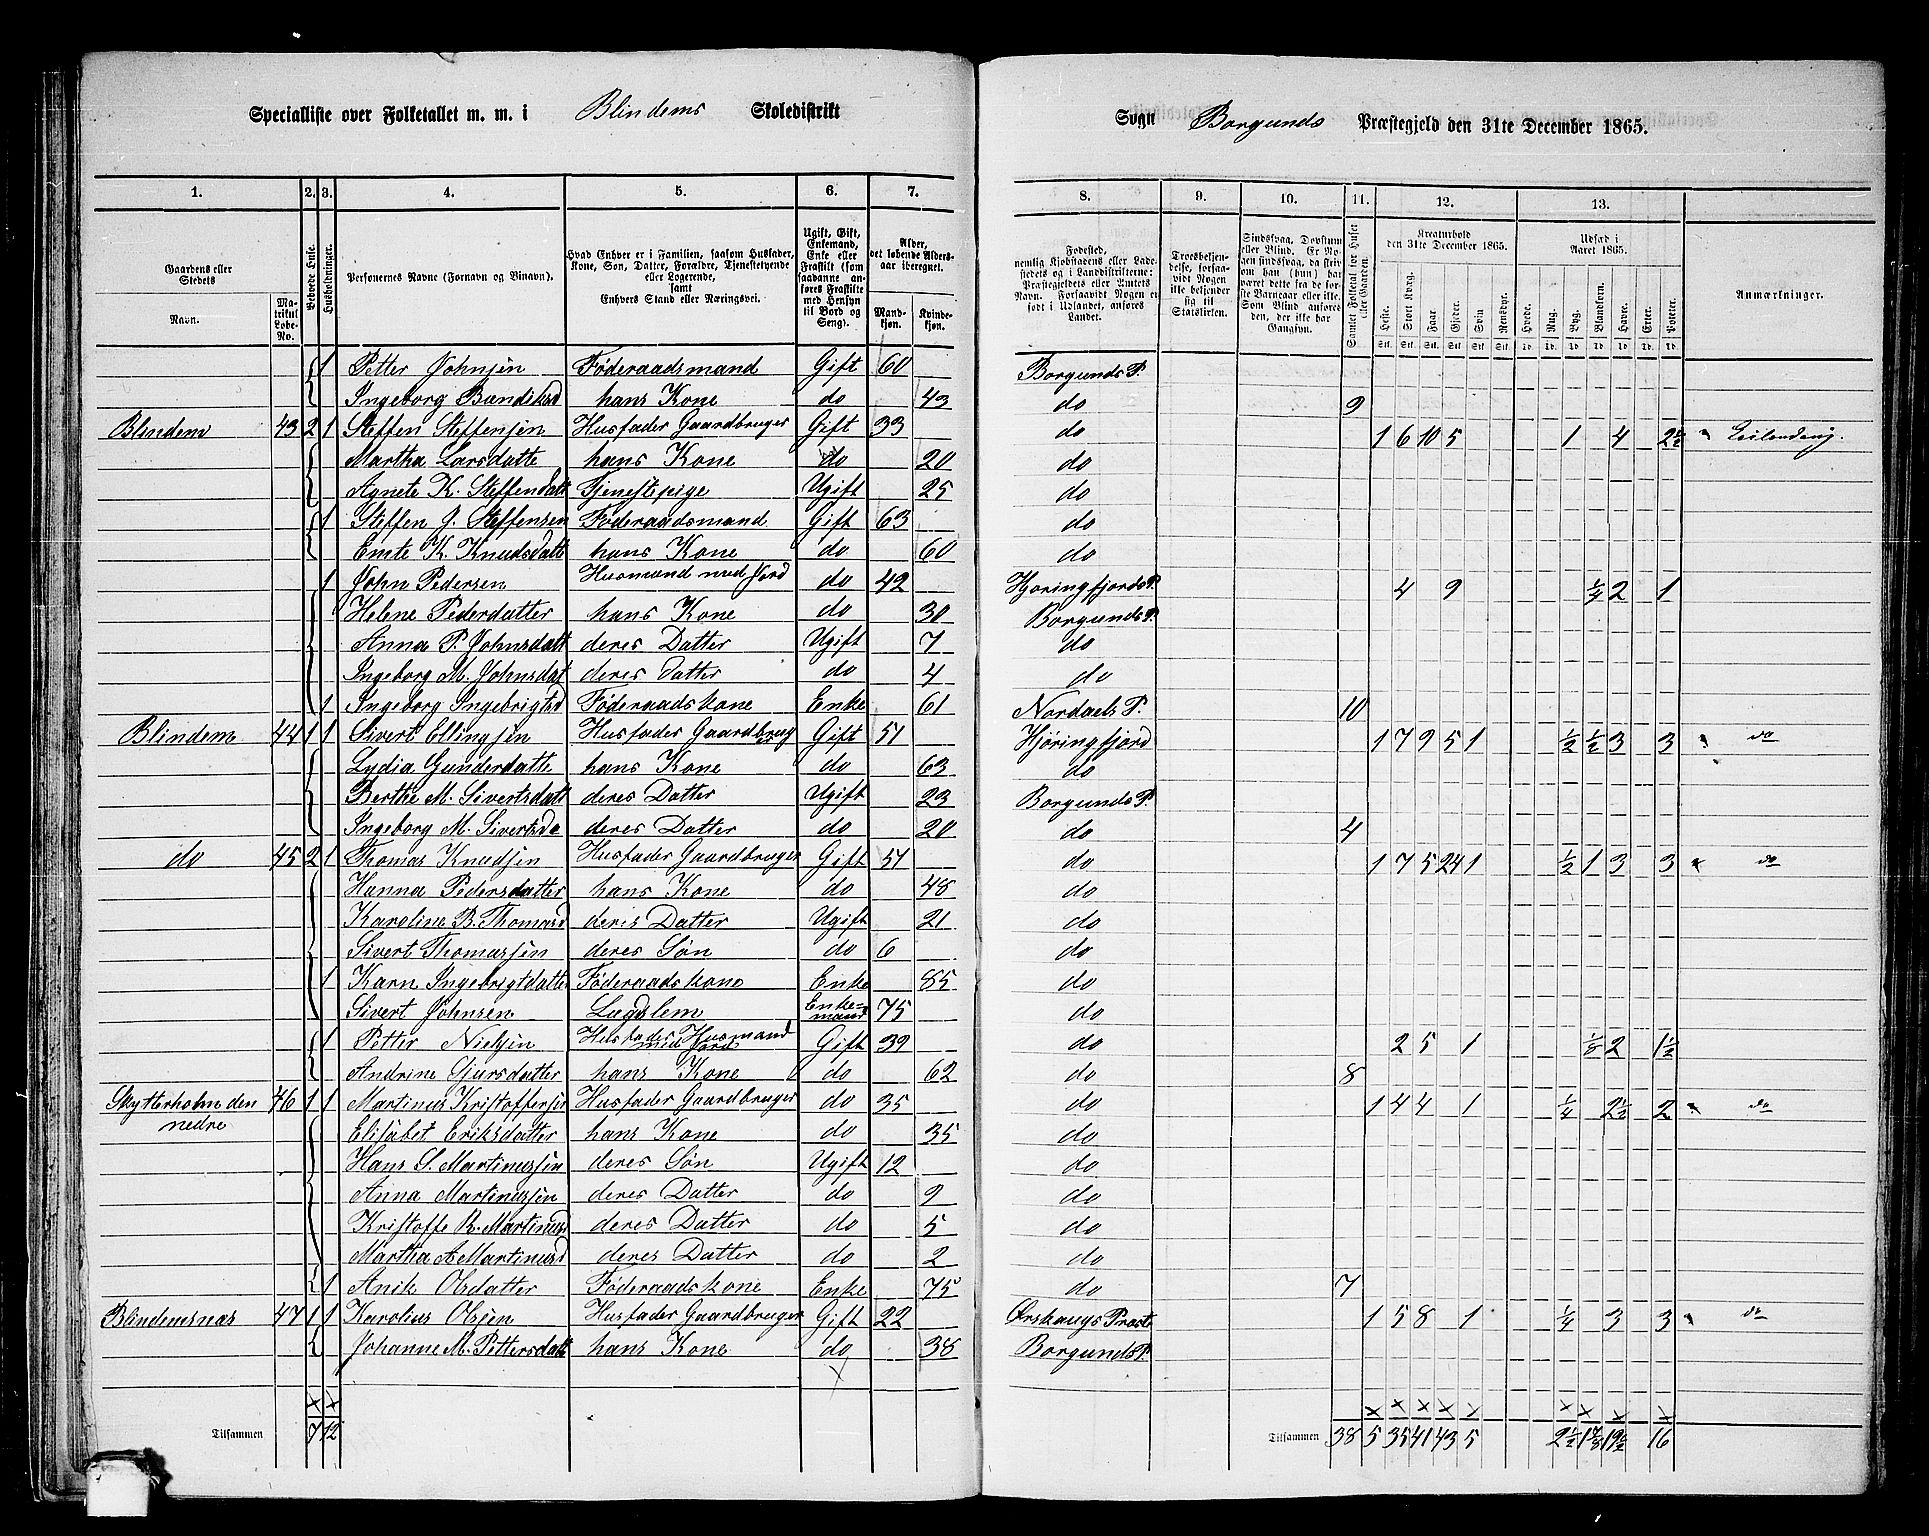 Specialliste over Folketallet m. m. i Blindems Skoledistrikt
Sogn Borgunds Præstegjeld den 31te December 1865.
1. 2. 3. 4. 5. 6. 7. 8. 9. 10. 11. 12. 13.
Gaardens eller Stedets
Navn.
Matrikul Løbe-No.
Beboede Huse.
Husholdninger.
Personernes Navne (Fornavn og Binavn).
Hvad Enhver er i Familien, saasom Husfader, Kone, Søn, Datter, Forældre, Tjenestetyende eller Logerende, samt Enhvers Stand eller Næringsvei.
Ugift, Gift, Enkemand, Enke eller Fraskilt (saadanne anføres Fraskilte med Hensyn til Bord og Seng).
Alder, det løbende Aldersaar iberegnet.
Mandkjøn.
Kvindekjøn.
Fødested,
Troesbekjendelse, forsaavidt Nogen ikke bekjender sig til Statskirken.
Samlet Folketal for Huset eller Gaarden.
Kreaturhold den 31te December 1865.
Heste. Stort Kvæg. Faar. Gjeder. Svin. Rensdyr.
Udsæd i Aaret 1865.
Hvede. Rug. Byg. Blandkorn. Havre. Erter. Poteter.
Anmærkninger.
1 Petter Johnsen Føderaadsmand Gift 60 Borgunds P.
Ingeborg Bendiksd hans Kone do 43 do 9
Blindem 43 2 1 Steffen Steffensen Husfader Gaardbruger Gift 33 do 1 6 10 5 1 4 Leilending.
Martha Larsdatte hans Kone do 20 do
Agnete K. Steffensdatt Tjenestepige Ugift 25 do
1 Steffen J. Steffensen Føderaadsmand Gift 63 do
Emte K. Knudsdatte hans Kone do 60 do
1 John Pedersen Husmand med Jord do 42 Hjøringfjords P. 4 9 1/4 2 1
Helene Pederdatter hans Kone do 30 Borgunds P.
Anna P. Johnsdatt deres Datter Ugift 7 do
Ingeborg M. Johnsdat deres Datter do 4 do
1 Ingeborg Ingebrigtsd Føderaadskone Enke 61 Nordals P. 10
Blindem 44 1 1 Sivert Ellingsen Husfader Gaardbrug Gift 51 Hjøringfjord 1 7 9 5 1 1/2 1/2 3 3 do
Lydia Gunderdatte hans Kone do 63 do
Berthe M. Sivertsdatt deres Datter Ugift 23 Borgunds P.
Ingeborg M. Sivertsda deres Datter do 20 do 4
do 45 2 1 Thomas Knudsen Husfader Gaardbruger Gift 51 do 1 7 5 24 1 1/2 1 3 3 do
Hanna Pedersdatter hans Kone do 48 do
Karoline B. Thomasd deres Datter Ugift 21 do
Sivert Thomassen deres Søn do 6 do
1 Karn Ingebrigtdatte Føderaadskone Enke 85 do
Sivert Johnsen Lægdslem Enkemand 75 do
1 Petter Nielsen Husfader Husmand med Jord Gift 39 do 2 5 1 1/8 2 1 1/2
Andrine Gjursdatter hans Kone do 62 do 8
Skytterholm den nedre 46 1 1 Martinus Kristoffersen Husfader Gaardbruger do 35 do 1 4 4 1 1/4 2 1/2 2 do
Elisabet Eriksdatter hans Kone do 35 do
Hans S. Martinussen deres Søn Ugift 12 do
Anna Martinussen deres Datter do 9 do
Kristoffe R. Martinusd deres Datter do 5 do
Martha A Martinusd deres Datter do 2 do
1 Anik Olsdatter Føderaadskone Enke 75 do 7
Blindemsnæs 47 1 1 Karolius Olsen Husfader Gaardbruger Gift 22 Ørskaugs Præste 1 5 8 1 1/4 3 3 do
Johanne M. Pettersdatt hans Kone do 38 Borgunds P.
Tilsammen 7 12
Tilsammen 38 5 35 41 43 5 2 1/2 16